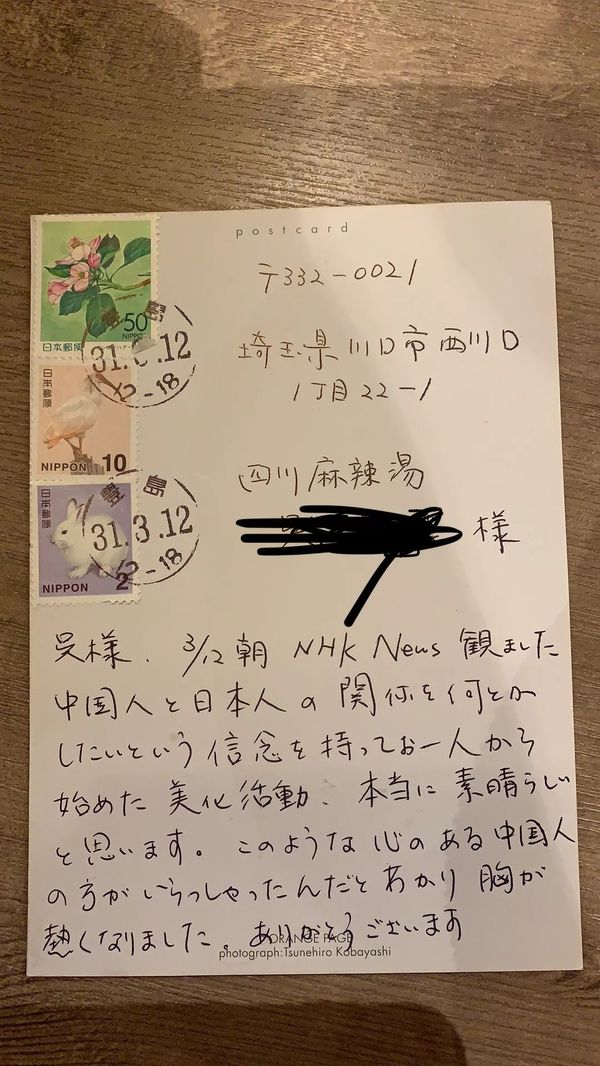 postcard
〒332-0021
埼玉県川口市西川口
1丁目22-1
四川麻辣湯
様
50
NIPPON
日本郵便
31. .12
12-18
日本郵便
NIPPON 10
豊島
31.3.12
12-18
日本郵便
NIPPON 2
呉様、3/12朝 NHK News 観ました
中国人と日本人の関係を何とか
したいという信念を持ってお一人から
始めた美化活動、本当に素晴らしい
と思います。このような心のある中国人
の方がいらっしゃったんだとわかり胸が
熱くなりました。ありがとうございます
ORANGE PAGE
photograph:Tsunehiro Kobayashi